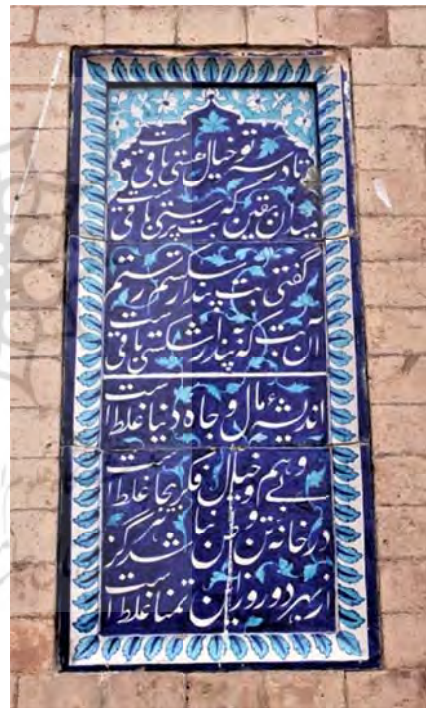 تا در سر تو خیال هستی باقیست
میدان بیقین که بت پرستی باقیست
گفتی بت پندار شکستم رستم
آن بت که پندار شکستی باقیست
اندیشهٔ مال و جاه دنیا غلط است
وهم و خیال و فکر بیجا غلط است
در خانهٔ تن وطن نباشد هرگز
از بهر دو روز این تمنا غلط است